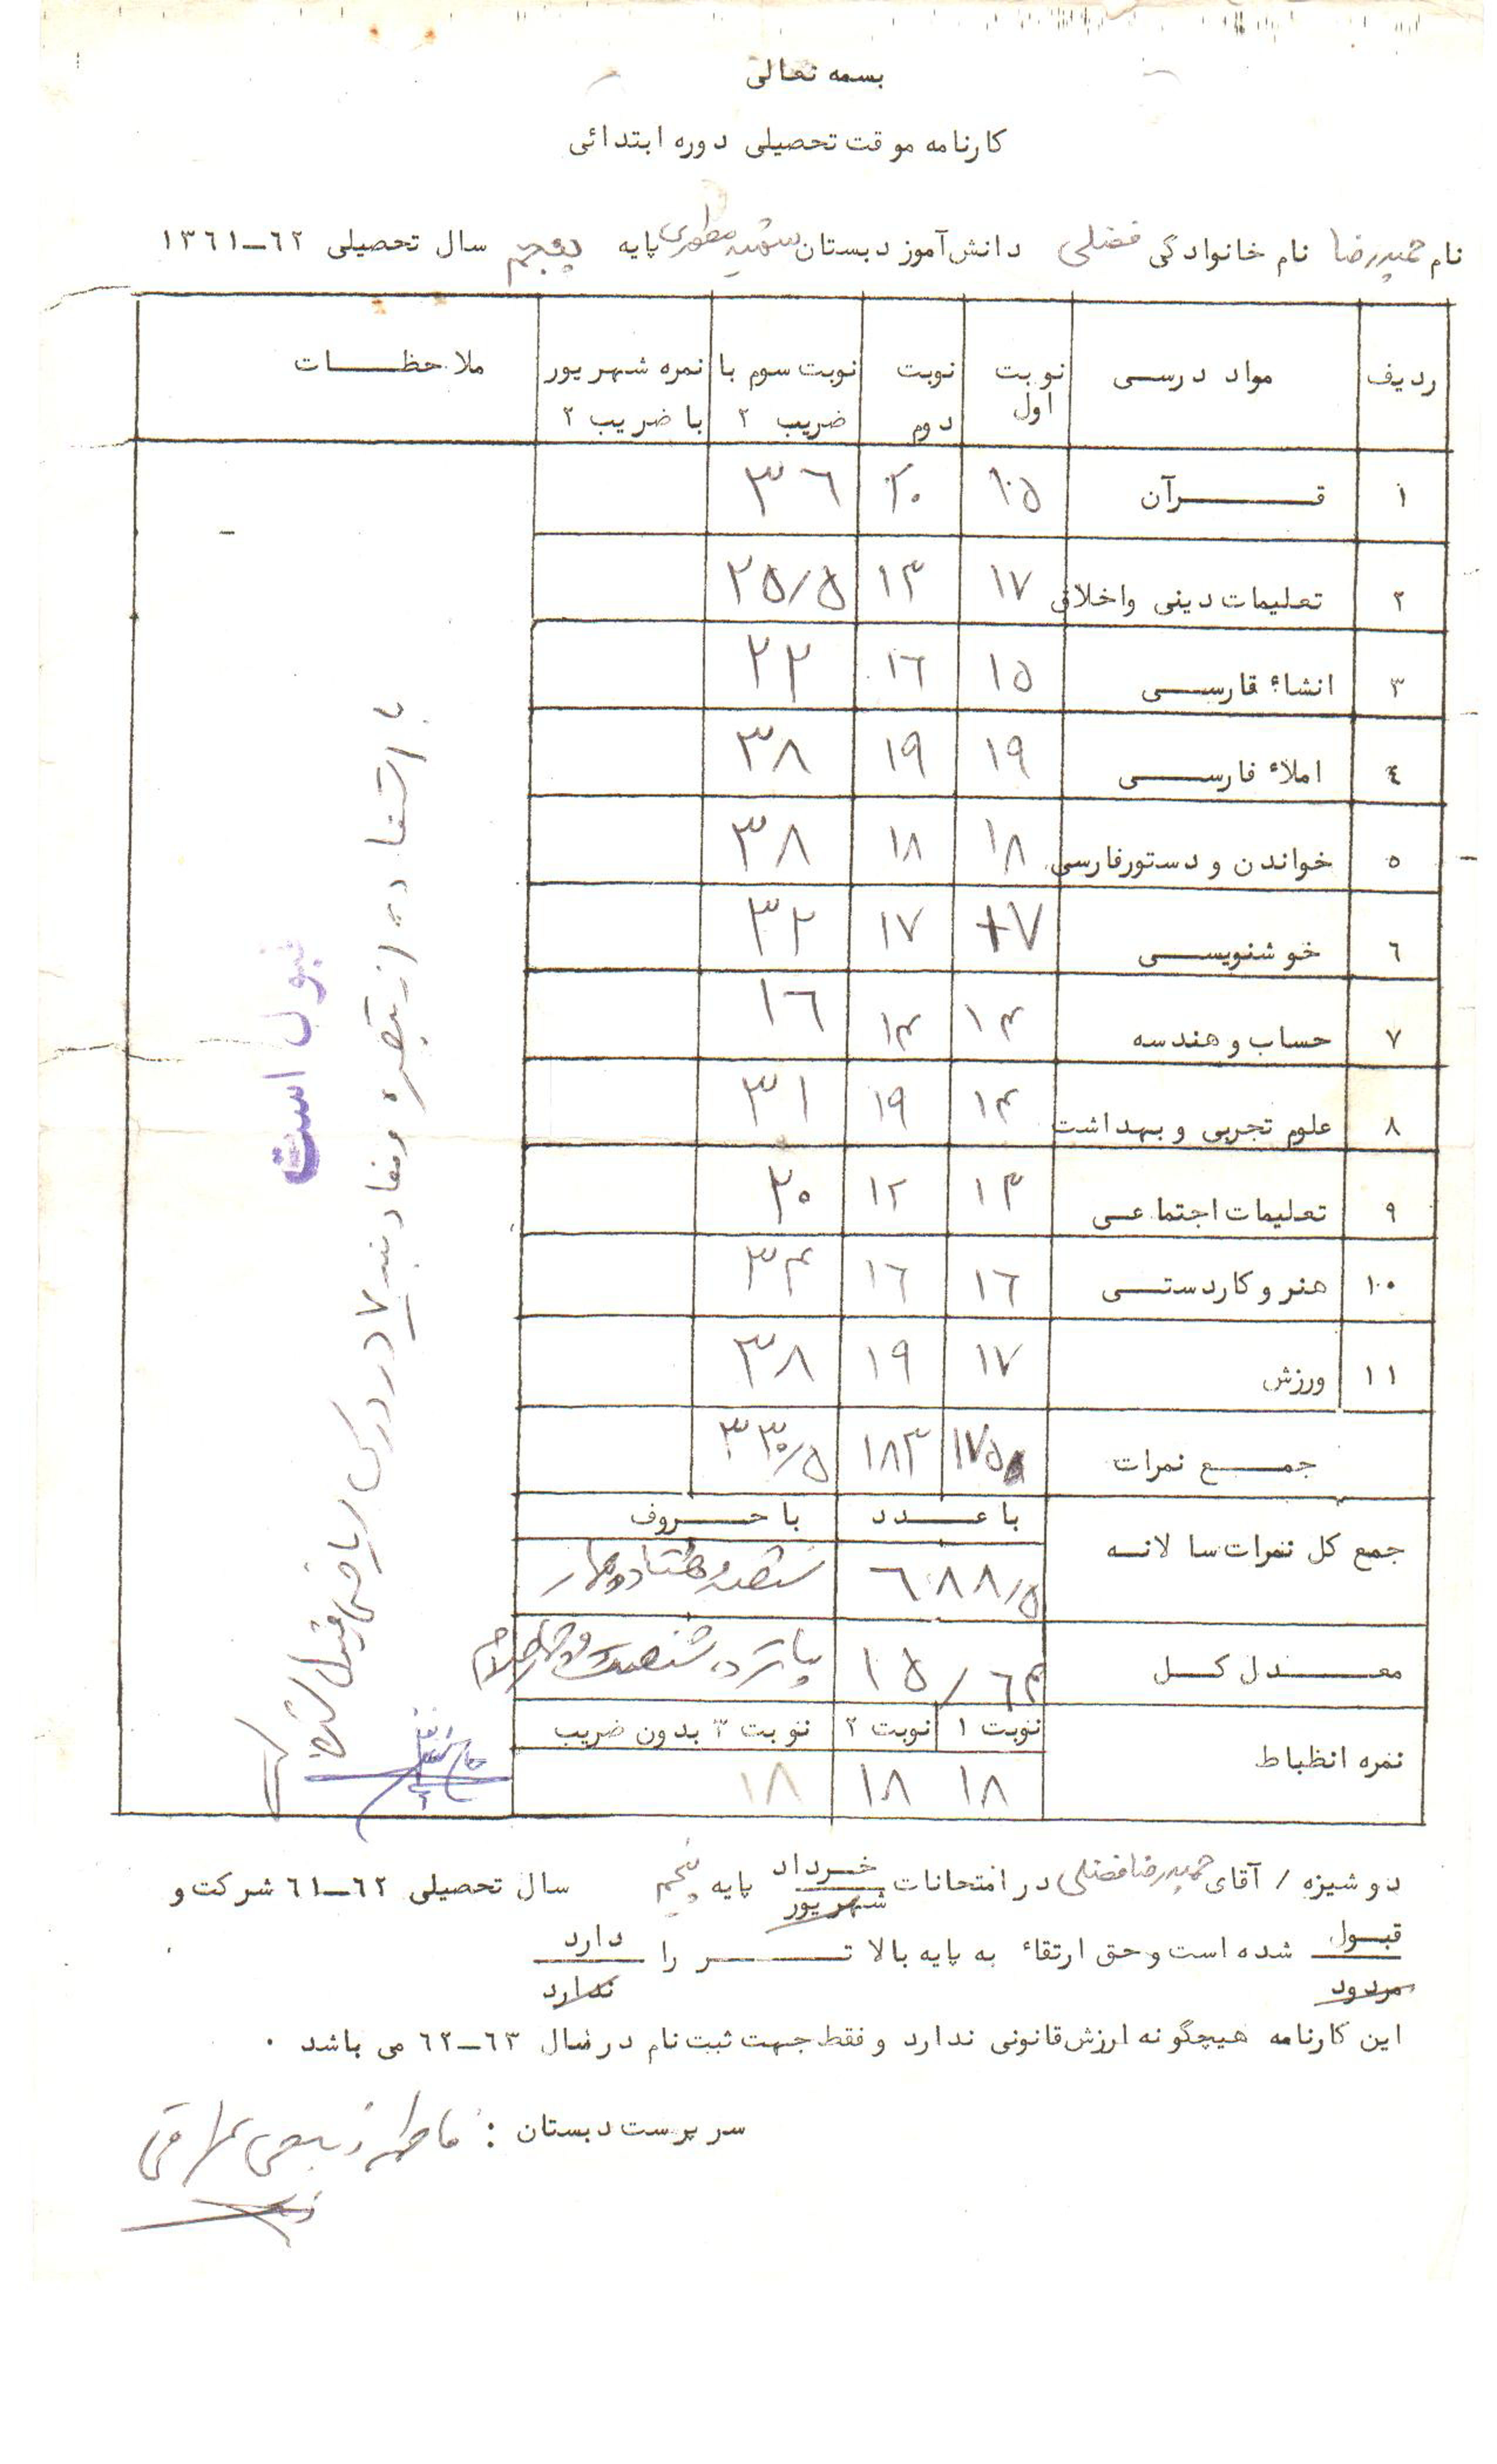 بسمه تعالی
کارنامه موقت تحصیلی دوره ابتدائی
نام حمیدرضا نام خانوادگی فضلی دانش‌آموز دبستان شهید مطهری پایه پنجم سال تحصیلی ۶۲-۱۳۶۱
ردیف مواد درسی نوبت اول نوبت دوم نوبت سوم با ضریب ۲ نمره شهریور با ضریب ۲ ملاحظات
۱ قرآن ۱۰٫۵ ۲۰ ۳۶
۲ تعلیمات دینی واخلاق ۱۷ ۱۳ ۲۵/۵
۳ انشاء فارسی ۱۵ ۱۶ ۲۲
٤ املاء فارسی ۱۹ ۱۹ ۳۸
۵ خواندن و دستورفارسی ۱۸ ۱۸ ۳۸
۶ خوشنویسی ۱۷ ۱۷ ۳۲
۷ حساب و هندسه ۱۴ ۱۴ ۱۶
۸ علوم تجربی و بهداشت ۱۴ ۱۹ ۳۱
۹ تعلیمات اجتماعی ۱۳ ۱۲ ۲۰
۱۰ هنر و کاردستی ۱۶ ۱۶ ۳۴
۱۱ ورزش ۱۷ ۱۹ ۳۸
جمع نمرات ۱۷۵ ۱۸۳ ۳۳۰/۵
با عدد با حروف
جمع کل نمرات سالانه ۶۸۸/۵
معدل کل ۱۵/۶۴ پانزده شصت و چهار صدم
نوبت ۱ نوبت ۲ نوبت ۳ بدون ضریب
نمره انظباط ۱۸ ۱۸ ۱۸
با استفاده از تبصره مفاد بند ۷ در درس ریاضی قبول
قبول است
دوشیزه / آقای حمیدرضا فضلی در امتحانات خرداد شهریور پایه پنجم سال تحصیلی ۶۲-۶۱ شرکت و
قبول مردود شده است و حق ارتقاء به پایه بالاتر را دارد ندارد
این کارنامه هیچگونه ارزش قانونی ندارد و فقط جهت ثبت نام در سال ۶۳-۶۲ می باشد .
سرپرست دبستان : فاطمه